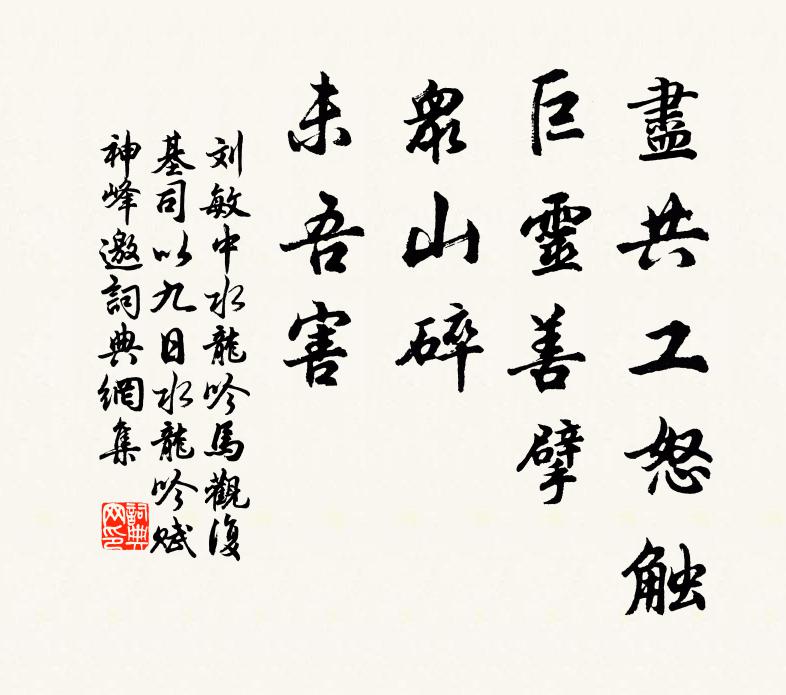 盡共工怒触
巨靈善擘
衆山碎
未吾害
刘敏中水龍吟馬觀復
基司以九日水龍吟賦
神峰邀詞典網集
詞典网印